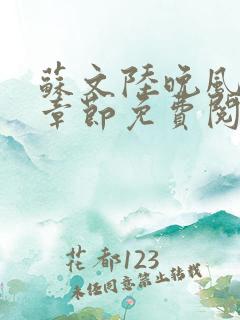 蘇文陸晚風
章節免費閱
花都123
未经同意禁止转载